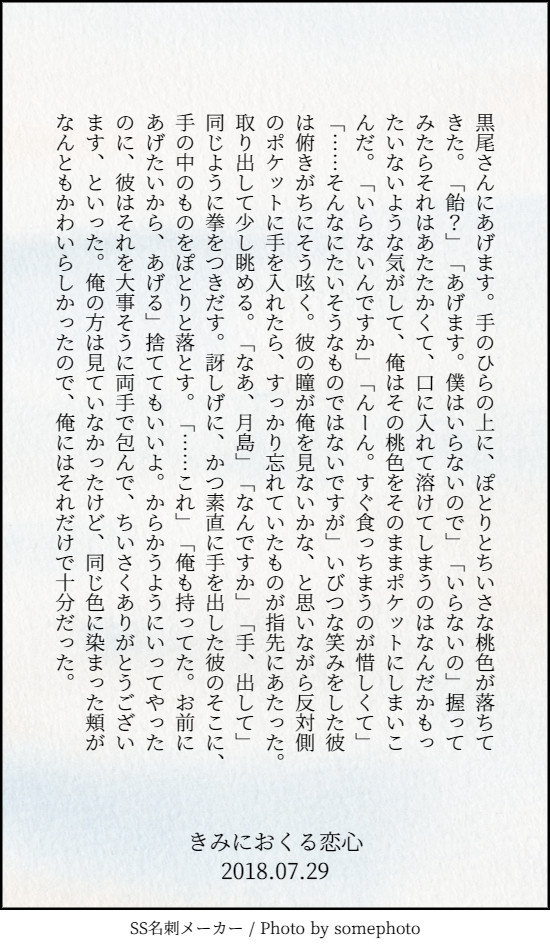 黒尾さんにあげます。手のひらの上に、ぽとりとちいさな桃色が落ちて
きた。「飴？」「あげます。僕はいらないので」「いらないの」握って
みたらそれはあたたかくて、口に入れて溶けてしまうのはなんだかもっ
たいないような気がして、俺はその桃色をそのままポケットにしまいこ
んだ。「いらないんですか」「んーん。すぐ食っちまうのが惜しくて」
「……そんなにたいそうなものではないですが」いびつな笑みをした彼
は俯きがちにそう呟く。彼の瞳が俺を見ないかな、と思いながら反対側
のポケットに手を入れたら、すっかり忘れていたものが指先にあたった。
取り出して少し眺める。「なあ、月島」「なんですか」「手、出して」
同じように拳をつきだす。訝しげに、かつ素直に手を出した彼のそこに、
手の中のものをぽとりと落とす。「……これ」「俺も持ってた。お前に
あげたいから、あげる」捨ててもいいよ。からかうようにいってやった
のに、彼はそれを大事そうに両手で包んで、ちいさくありがとうござい
ます、といった。俺の方は見ていなかったけど、同じ色に染まった頬が
なんともかわいらしかったので、俺にはそれだけで十分だった。
きみにおくる恋心
2018.07.29
SS名刺メーカー / Photo by somephoto